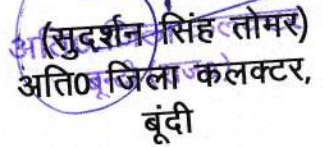 (सुदर्शन सिंह तोमर)
अति0 जिला कलक्टर,
बूंदी